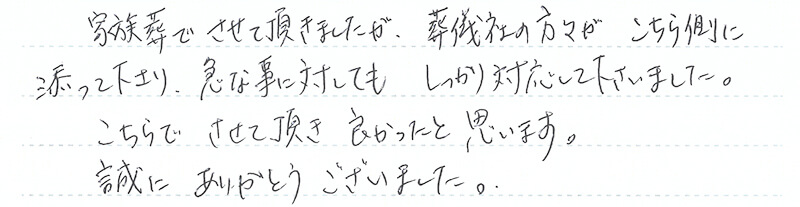 家族葬でさせて頂きましたが、葬儀社の方々がこちら側に
添って下さり、急な事に対してもしっかり対応して下さいました。
こちらでさせて頂き良かったと思います。
誠にありがとうございました。